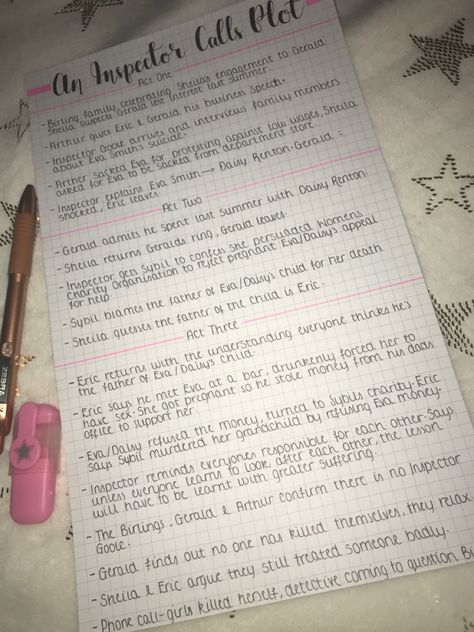 An Inspector Calls Plot
Act One
- Birling family celebrating Sheila's engagement to Gerald.
Sheila suspects Gerald lost interest last summer.
- Arthur gives Eric & Gerald his business speech.
- Inspector Goole arrives and interviews family members
about Eva Smith's suicide.
- Arther sacked Eva for protesting against low wages, Sheila
asked for Eva to be sacked from department store
- Inspector explains Eva Smith → Daisy Renton-Gerald =
shocked, Eric leaves.
Act Two
- Gerald admits he spent last summer with Daisy Renton.
- Sheila returns Geralds ring, Gerald leaves.
- Inspector gets Sybil to confess she persuaded womens
charity organisation to reject pregnant Eva/Daisy's appeal
for help.
- Sybil blames the father of Eva/Daisy's child for her death
- Sheila guesses the father of the child is Eric.
Act Three
- Eric returns with the understanding everyone thinks he's
the father of Eva/Daisy's child.
- Eric says he met Eva at a bar, drunkenly forced her to
have sex. She got pregnant so he stole money from his dads
office to support her.
- Eva/Daisy refused the money, turned to Sybils charity-Eric
says Sybil murdered her grandchild by refusing Eva money.
- Inspector reminds everyones responsible for each other. Says
unless everyone learns to look after each other, the lesson
will have to be learnt with greater suffering.
- The Birlings, Gerald & Arthur confirm there is no Inspector
Goole.
- Gerald finds out no one has killed themselves, they relax
- Sheila & Eric argue they still treated someone badly.
- Phone call-girls killed herself, detective coming to question
ZEBRA